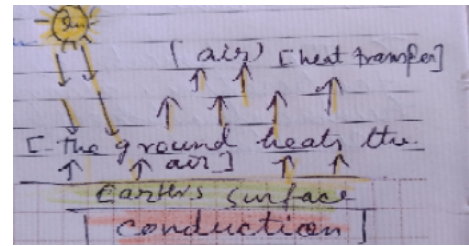 Sun
(air) [heat transfer]
[the ground heats the
air]
Earth's surface
[conduction]